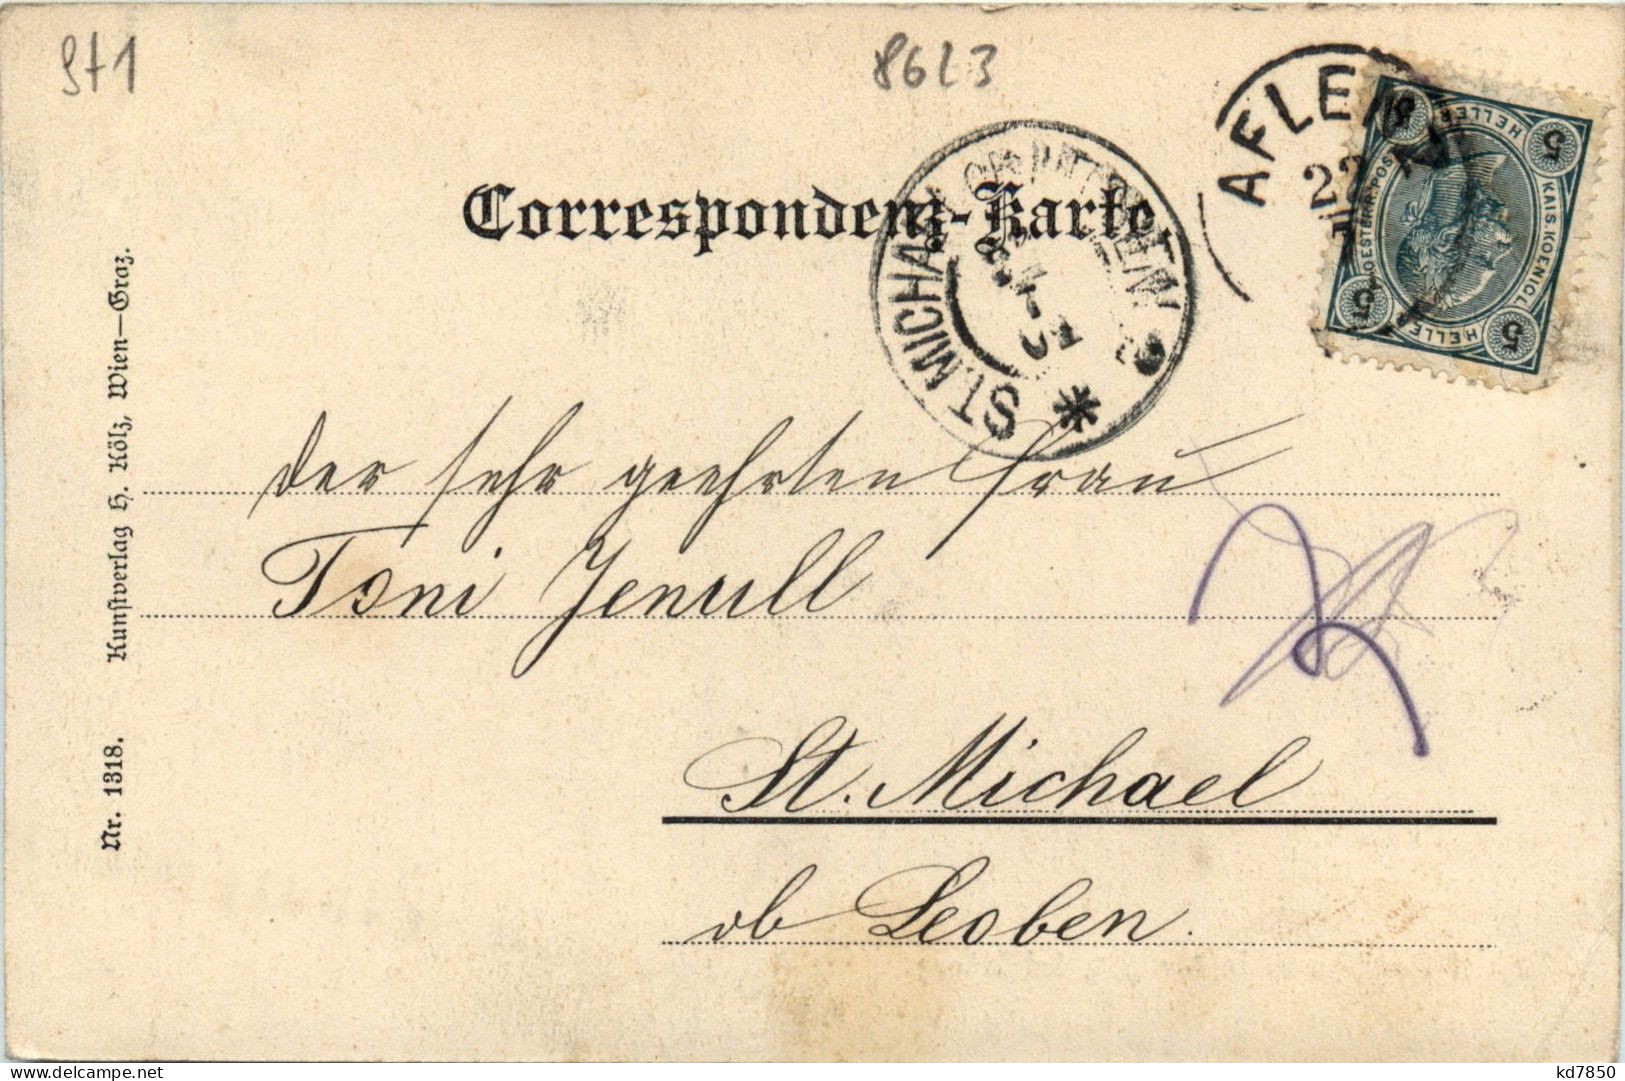 St1
8623
AFLENZ
22
Correspondenz-Karte
ST. MICHAEL OB LEOBEN
5 HELLER 5
KAIS. KOENIGL. OESTERR. POST
5 HELLER 5
der sehr geehrten Frau
Toni Jenull
St. Michael
ob Leoben.
Nr. 1318. Kunstverlag H. Kölz, Wien—Graz.
kd7850